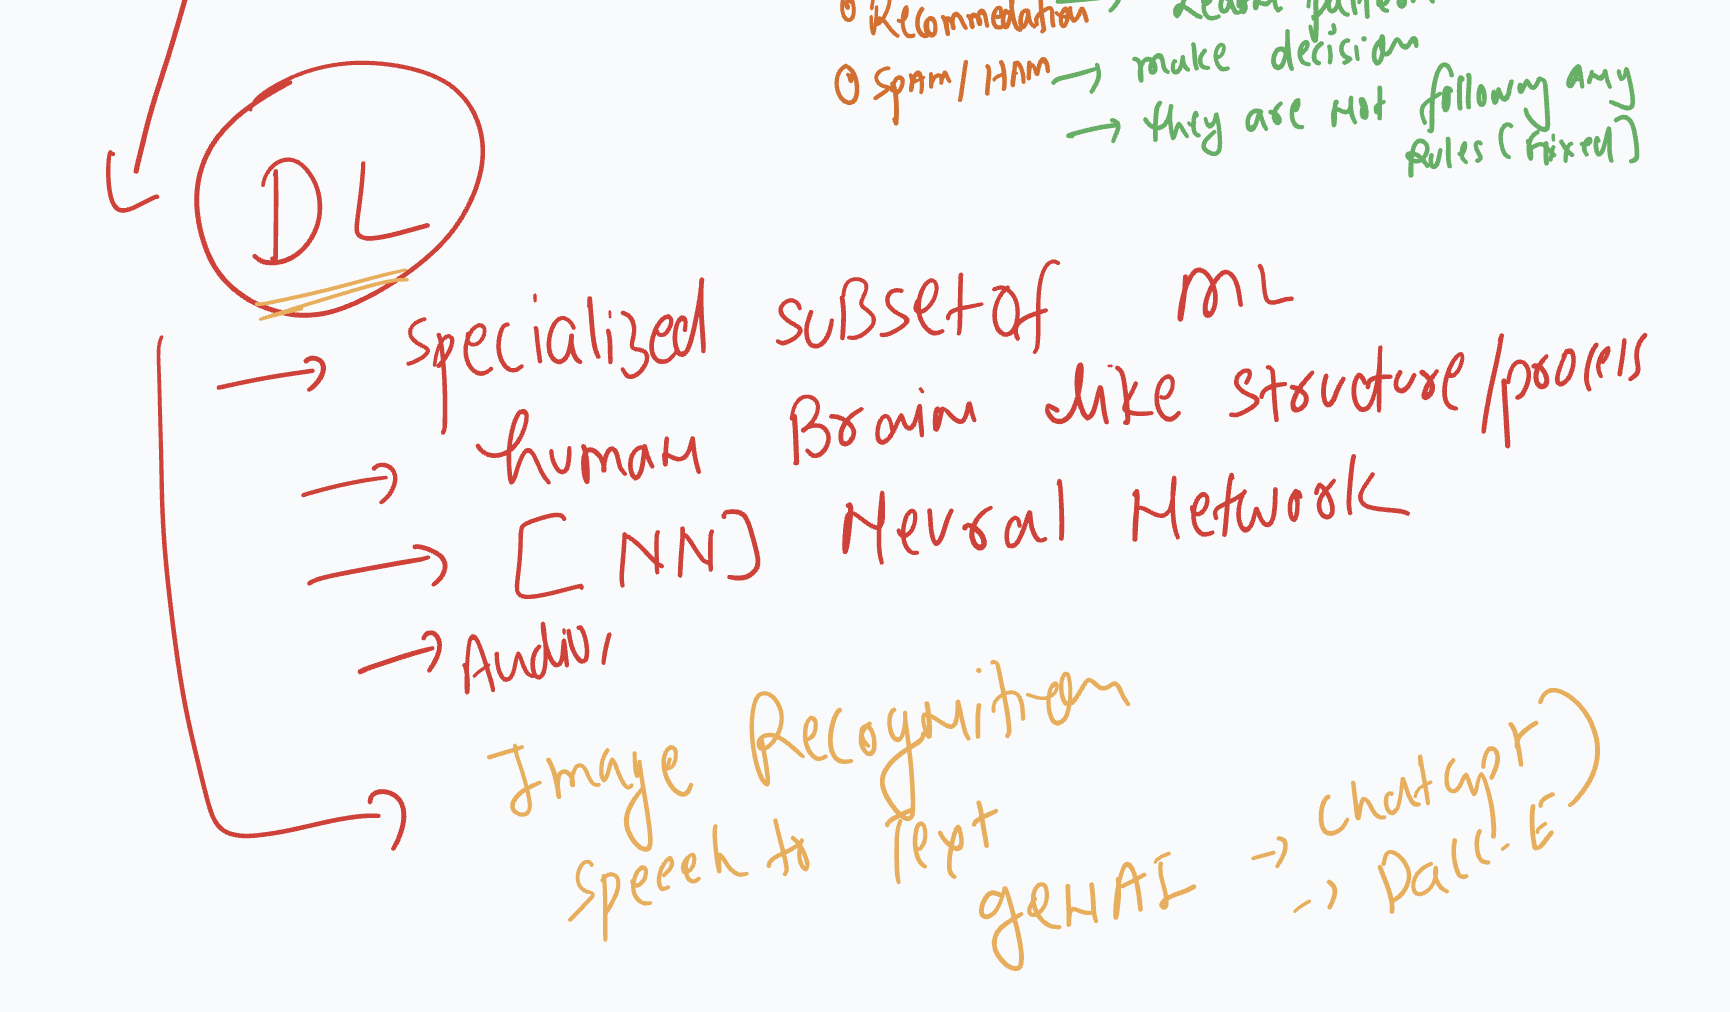 Recommedation
Learn pattern
SPAM / HAM → make decision
→ they are not following any
Rules (Fixed)
DL
→ specialized subset of ML
→ human Brain like structure/process
→ [NN] Neural Network
→ Audio,
Image Recognition
Speech to Text
genAI → Chatgpt
→ Dall-E